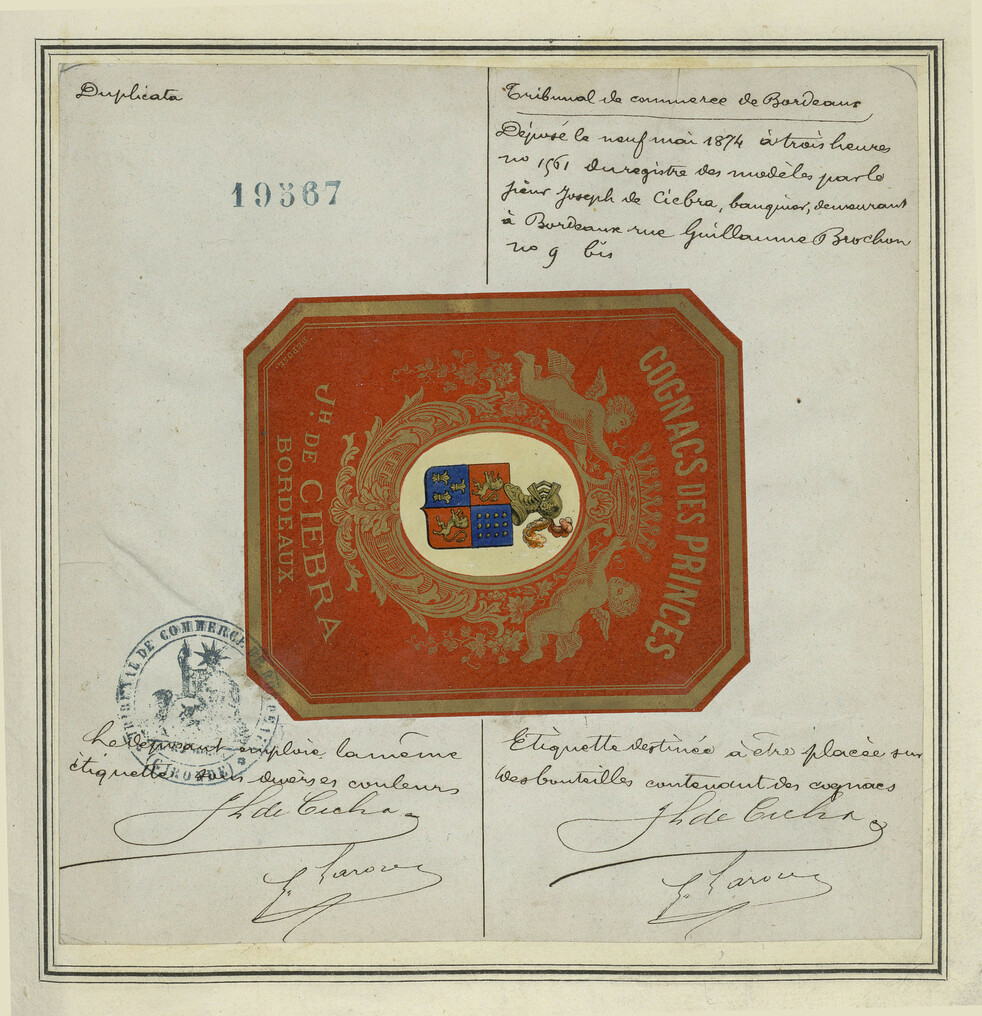 Duplicata
19567
Tribunal de commerce de Bordeaux
Déposé le neuf mai 1874 à trois heures
no 1561 du registre des modèles par le
sieur Joseph de Ciebra, banquier, demeurant
à Bordeaux rue Guillaume Brochon
no 9 bis
COGNACS DES PRINCES
JH. DE CIEBRA
BORDEAUX.
DÉPOSÉ.
TRIBUNAL DE COMMERCE DE BORDEAUX
(GIRONDE)
Le déposant emploie la même
étiquette sous diverses couleurs
Jh de Ciebra
Etiquette destinée à être placée sur
des bouteilles contenant des cognacs
Jh de Ciebra